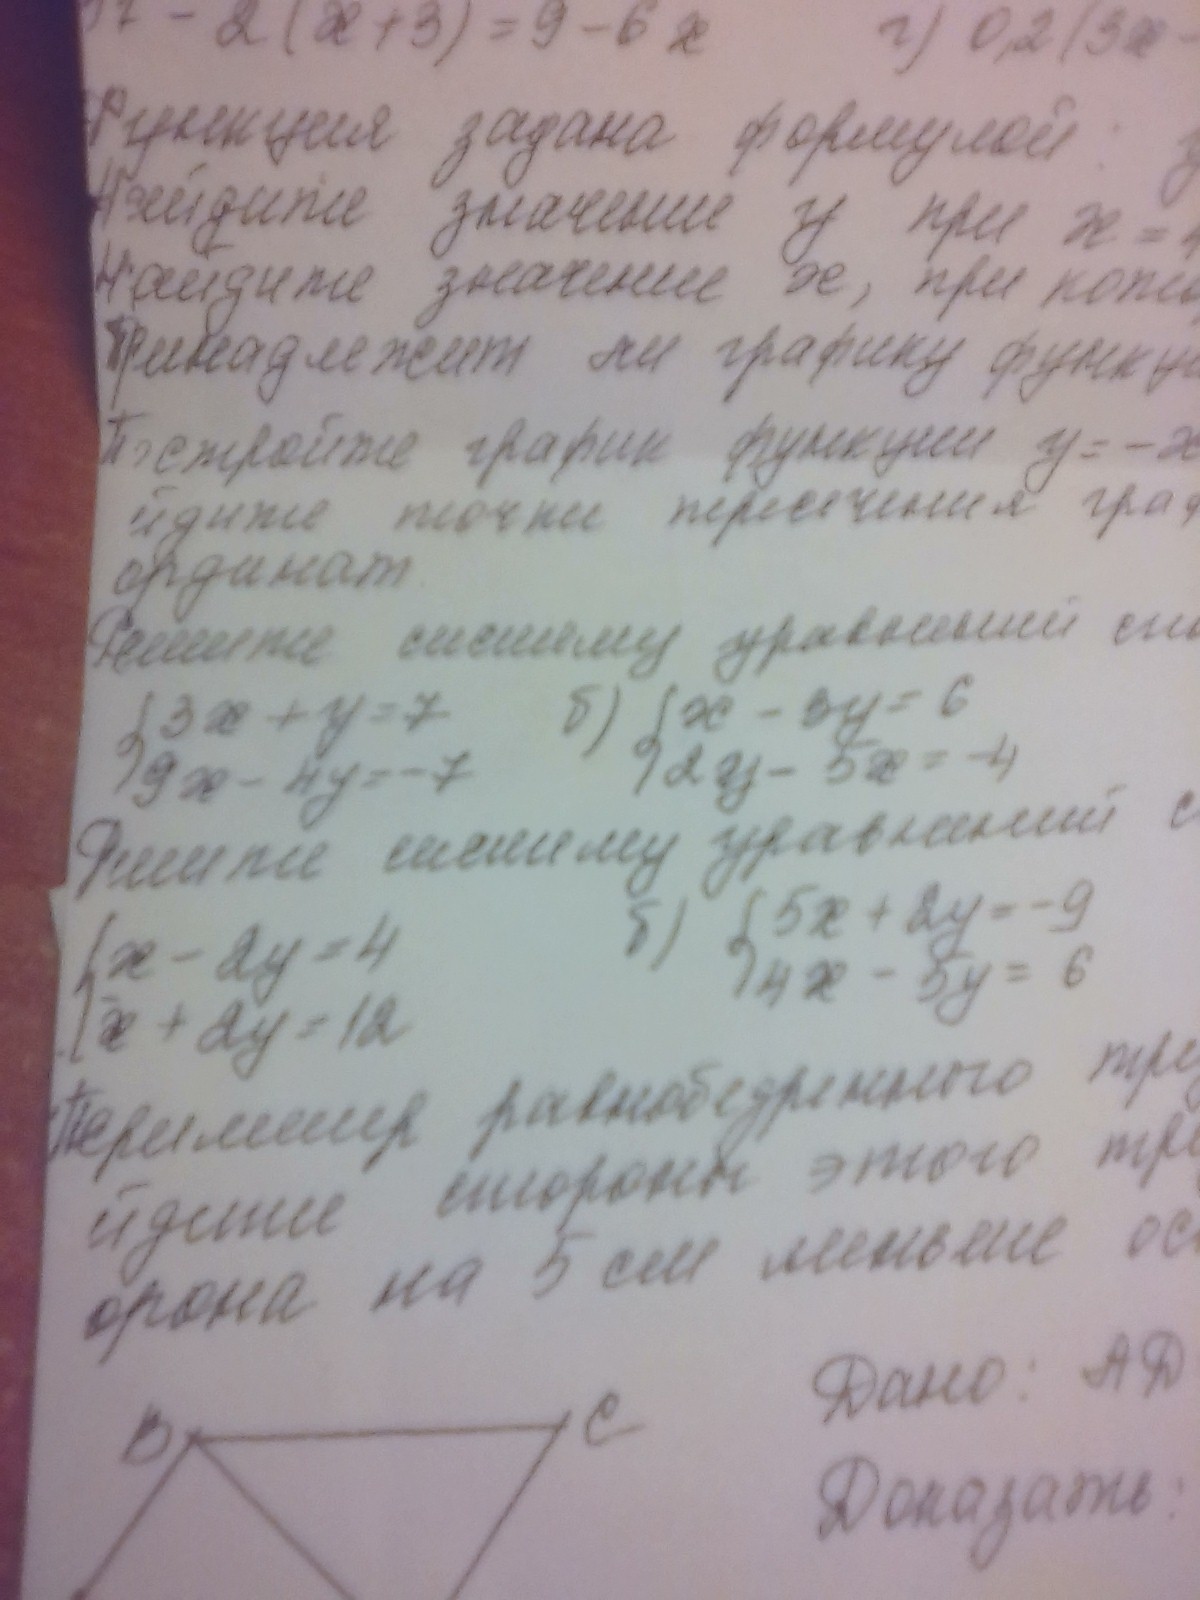 - 2(x+3)=9-6x г) 0,2(3x-
Функция задана формулой:
Найдите значение y при x=
Найдите значение x, при
Принадлежит ли графику
Постройте график функции y=-x
йдите точки пересечения
ординат
Решите систему уравнений
{3x+y=7 б) {x-3y=6
9x-4y=-7 2y-5x=-4
Решите систему уравнений с
{x-2y=4 б) {5x+2y=-9
x+2y=12 4x-5y=6
Периметр равнобедренного
йдите стороны этого
орона на 5 см меньше
Дано: AD
B C
Доказать: